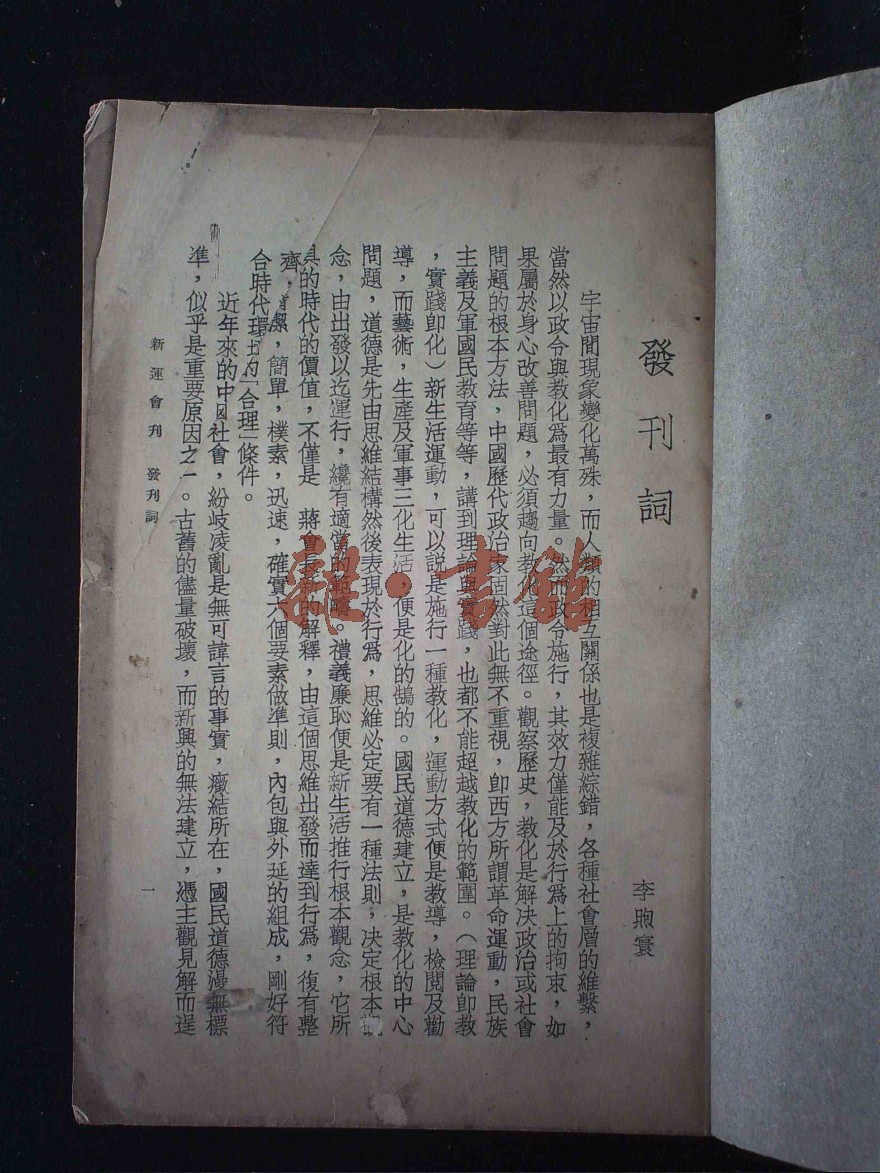 發刊詞
李煦寰
宇宙間現象變化萬殊，而人類的相互關係也是複雜綜錯，各種社會層的維繫，
當然以政令與教化爲最有力量。然而政令施行，其效力僅能及於行爲上的拘束，如
果屬於身心改善問題，必須趨向教化這個途徑。觀察歷史，教化是解決政治或社會
問題的根本方法，中國歷代政治家固然對此無不重視，卽西方所謂革命運動，民族
主義及軍國民教育等等，講到理論與實踐，也都不能超越教化的範圍。（理論卽教
，實踐卽化）新生活運動，可以說是施行一種教化，運動方式便是教導，檢閱及勸
導，而藝術，生產及軍事三化生活，便是化的鵠的。國民道德建立，是教化的中心
問題，道德是先由思維結構然後表現於行爲，思維必定要有一種法則，決定根本觀
念，由出發以迄運行，纔有適當的範疇。禮義廉恥便是新生活推行根本觀念，它所
具的時代的價值，不僅是 蔣會長新的解釋，由這個思維出發而達到行爲，復有整
齊，清潔，簡單，樸素，迅速，確實六個要素做準則，內包與外延的組成，剛好符
合時代環境的「合理」條件。
近年來的中國社會，紛歧凌亂是無可諱言的事實，癥結所在，國民道德漫無標
準，似乎是重要原因之一。古舊的儘量破壞，而新興的無法建立，憑主觀見解而逞
新運會刊 發刊詞
一
雜·書館